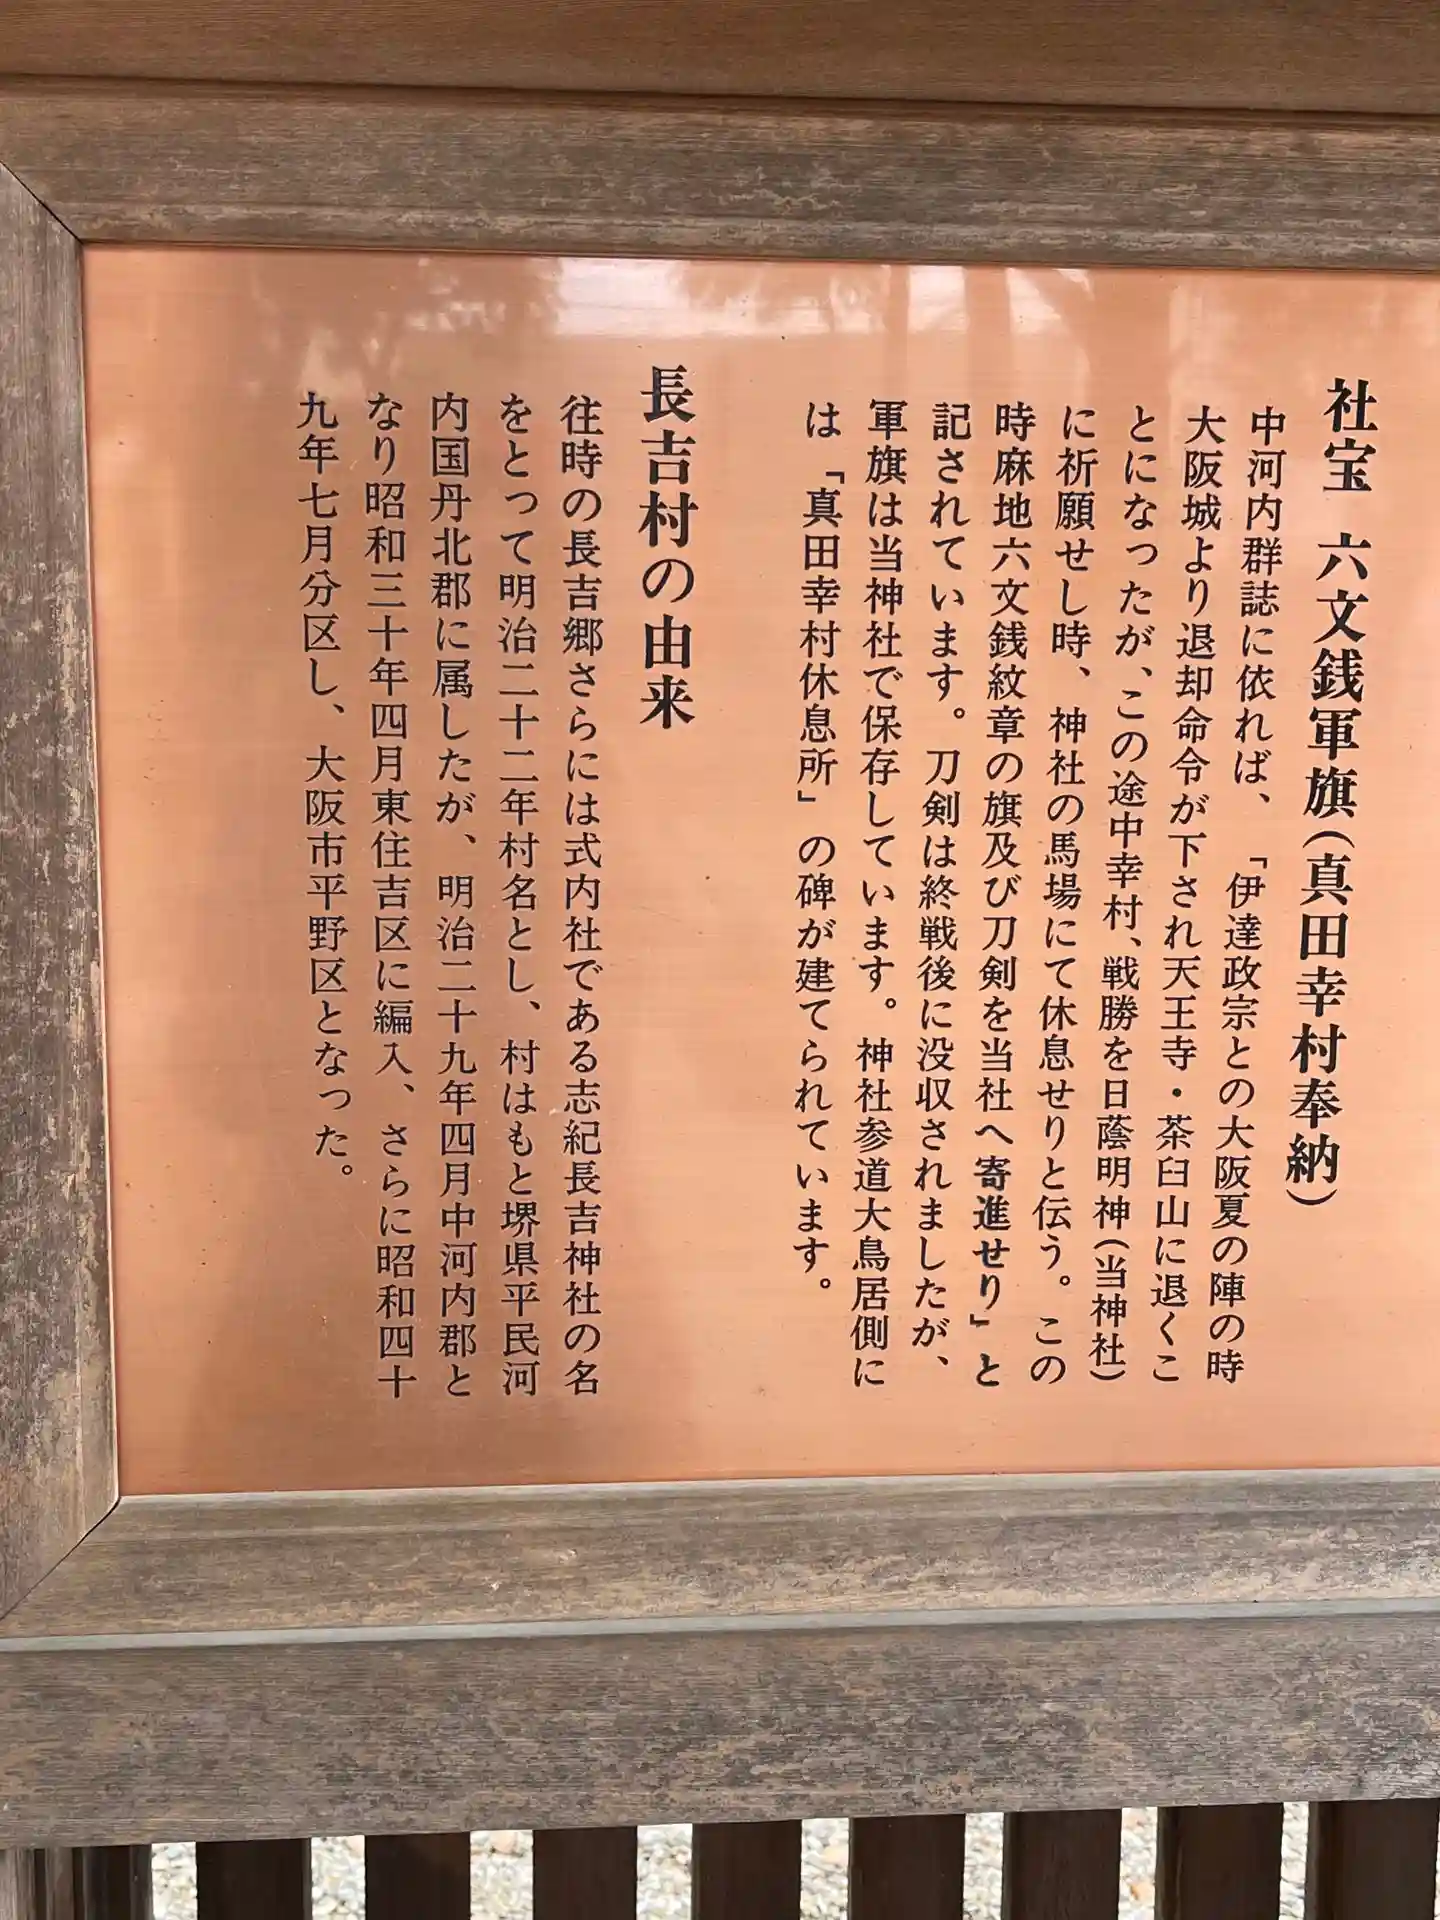 社宝 六文銭軍旗(真田幸村奉納)
中河内群誌に依れば、「伊達政宗との大阪夏の陣の時
大阪城より退却命令が下され天王寺・茶臼山に退くこ
とになったが、この途中幸村、戦勝を日蔭明神(当神社)
に祈願せし時、神社の馬場にて休息せりと伝う。この
時麻地六文銭紋章の旗及び刀剣を当社へ寄進せり」と
記されています。刀剣は終戦後に没収されましたが、
軍旗は当神社で保存しています。神社参道大鳥居側に
は「真田幸村休息所」の碑が建てられています。
長吉村の由来
往時の長吉郷さらには式内社である志紀長吉神社の名
をとって明治二十二年村名とし、村はもと堺県平民河
内国丹北郡に属したが、明治二十九年四月中河内郡と
なり昭和三十年四月東住吉区に編入、さらに昭和四十
九年七月分区し、大阪市平野区となった。